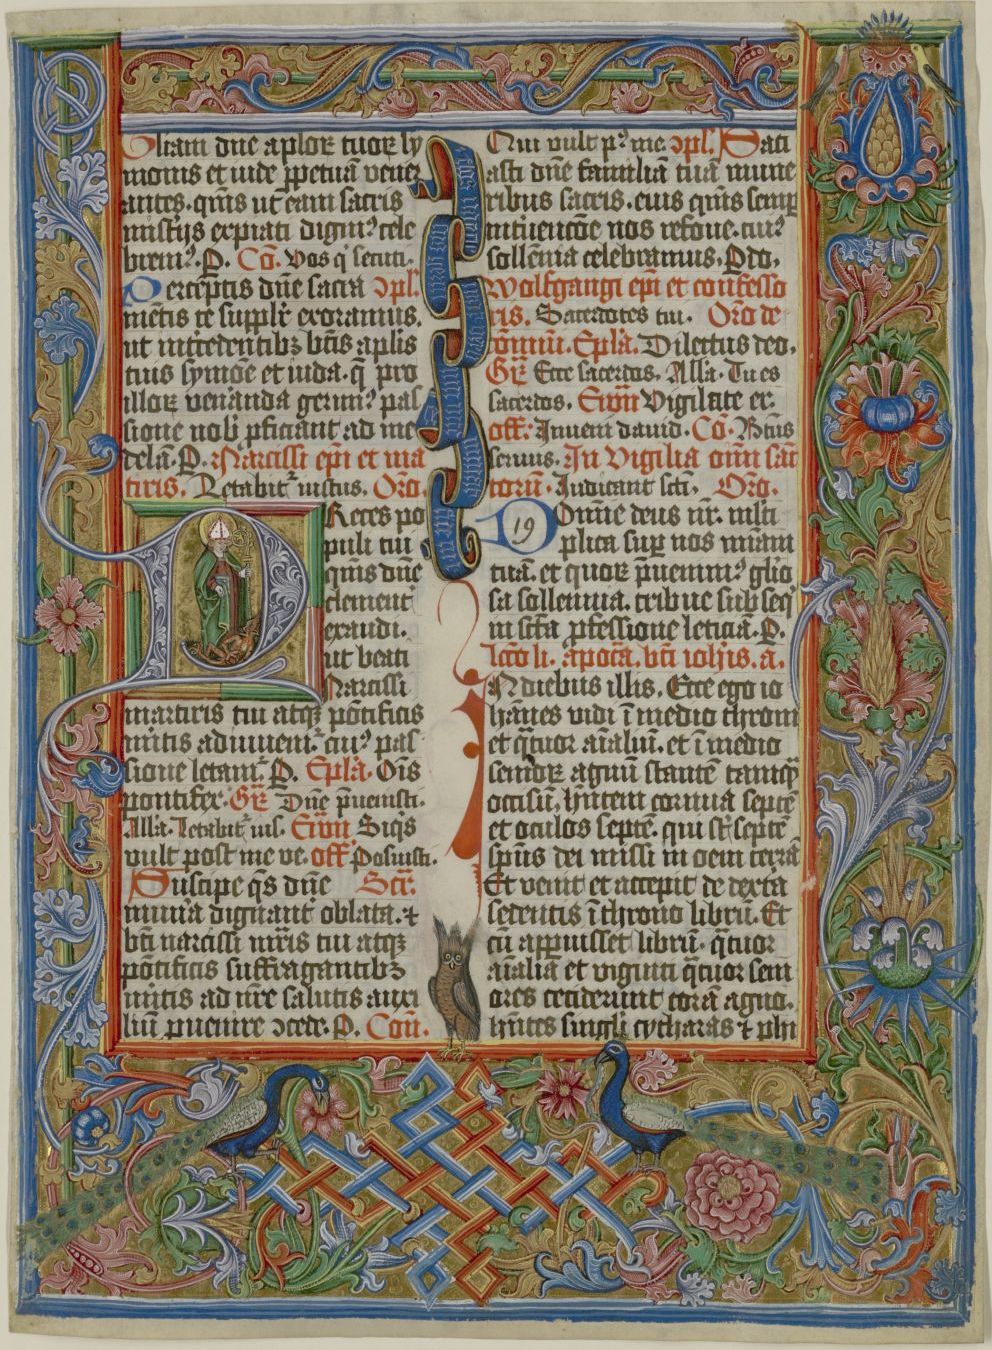 Gliam dne aplor tuor sy
monis et iude ppetuā vener
antes. qms ut eam sacris
mistijs expiati digni⁹ cele
brem⁹. P. Cō. Vos q secuti.
Perceptis dne sacra
mētis te supplr exoramus.
ut intcedentibz btis aplis
tuis symōe et iuda. q̄ pro
illor veneranda gerim⁹ pas
sione nobis pficiant ad me
delā. P. Narcissi epi et ma
tiris. Letabit iustus. Orō.
Preces po
puli tui
qms dne
clement
exaudi.
ut beati
Narcissi
martiris tui atqz pōtificis
mitis adiuvem. cui⁹ pas
sione letam. P. Epla. Oīs
pontifex. Gr. Dne pvenisti.
Alla. Letabit ius. Ewn Siqs
vult post me ve. off. Posuisti.
Suscipe qs dne Scr.
munera dignant oblata. et
bti narcissi mris tui atqz
pōtificis suffragantibz
mitis ad nre salutis auxi
liū pvenire ɔcede. P. Com.
Qui vult p⁹ me. ɔpl. Saci
asti dne familiā tuā mune
ribus sacris. eius qms semp
intvencōe nos refove. cui⁹
sollēnia celebramus. P do.
Wolfgangi epi et confesso
ris. Sacerdotes tui. Orō de
omni. Epla. Dilectus deo.
Gr. Ecce sacerdos. Alla. Tu es
sacerdos. Ewn Vigilate et
off. Inveni david. Cō. Btus
servus. In Vigilia omni sāc
torū. Iudicant sci. Orō.
Domine deus nr. mlti
19
plica sup nos misam
tuā. et quor pvenim⁹ glio
sa sollennia. tribue subseq
in scta pfessione leticiā. P.
Lcō li. apoca. bti iohis. a.
In diebus illis. Ecce ego io
hānes vidi ī medio throni
et qtuor aialiū. et ī medio
senior agnū stantē tamqz
occisū. hntem cornua septē
et oculos septē. qui st septē
spūs dei missi in oem terrā
Et venit et accepit de dextra
sedentis ī throno librū. Et
cū appuisset librū. qtuor
aialia et viginti qtuor seni
ores ceciderunt corā agno.
hntes singli cytharas et phi